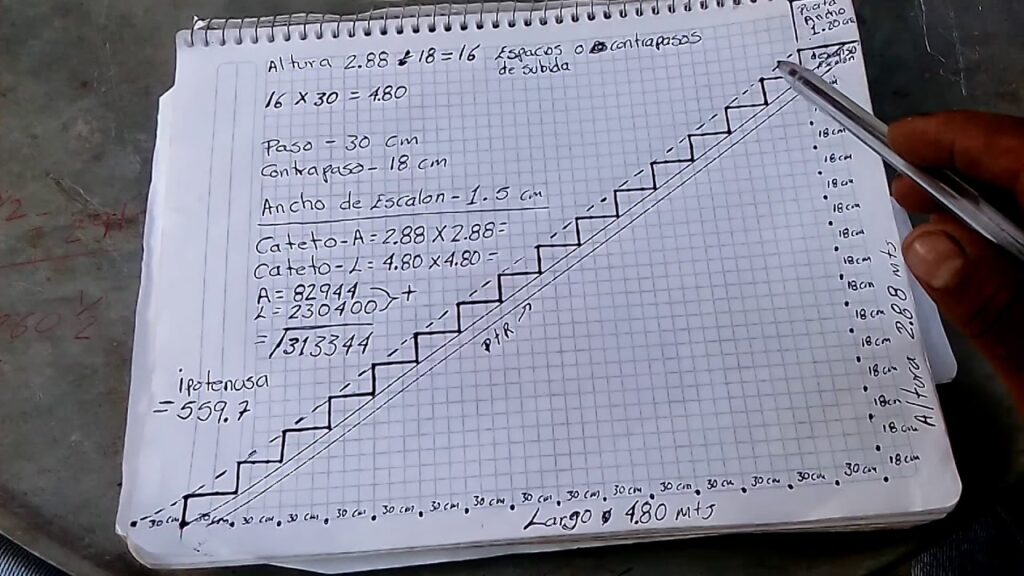 Altura 2.88 ÷ 18 = 16 Espacos o contrapasos
de subida
16 x 30 = 4.80
Paso - 30 cm
Contrapaso - 18 cm
Ancho de Escalon - 1.5 cm
Cateto - A = 2.88 x 2.88 =
Cateto - L = 4.80 x 4.80 =
A = 82944
L = 230400 +
= √313344
ipotenusa
= 559.7
PTR
Puerta
Ancho
1.20 cm
Escalon
18 cm
18 cm
18 cm
18 cm
18 cm
18 cm
18 cm
18 cm
18 cm
18 cm
18 cm
18 cm
18 cm
Altura 2.88 mts
30 cm 30 cm 30 cm 30 cm 30 cm 30 cm 30 cm 30 cm 30 cm 30 cm 30 cm 30 cm 30 cm 30 cm 30 cm 30 cm
Largo 4.80 mts